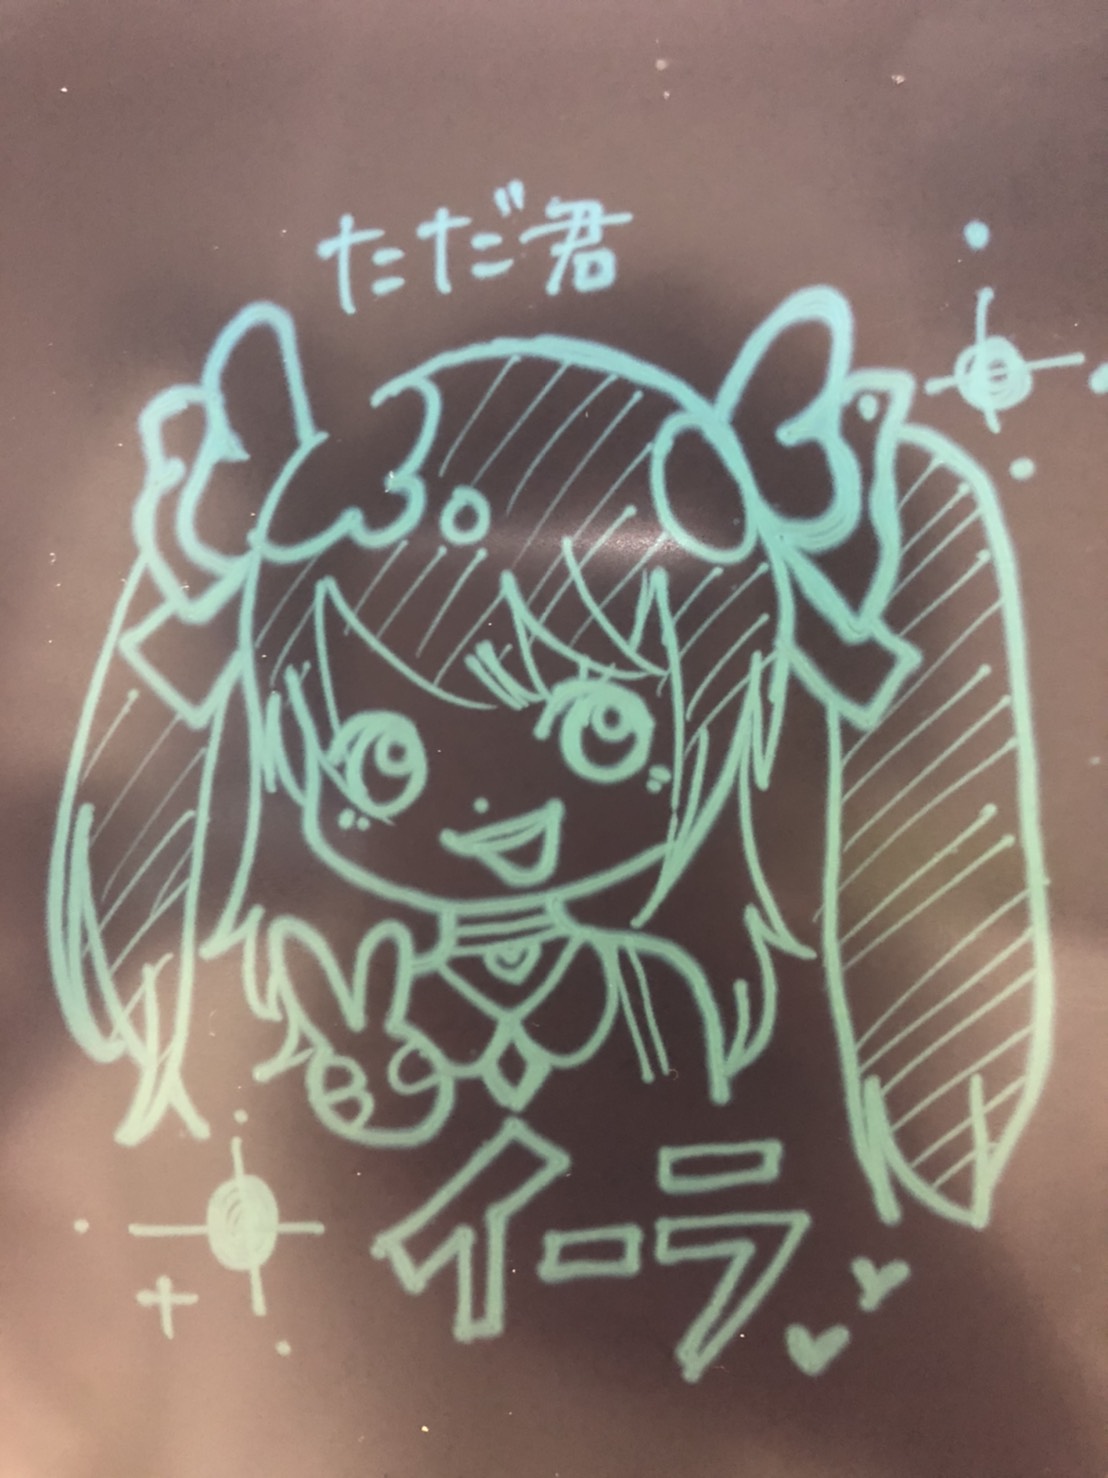 ただ君
イーラ